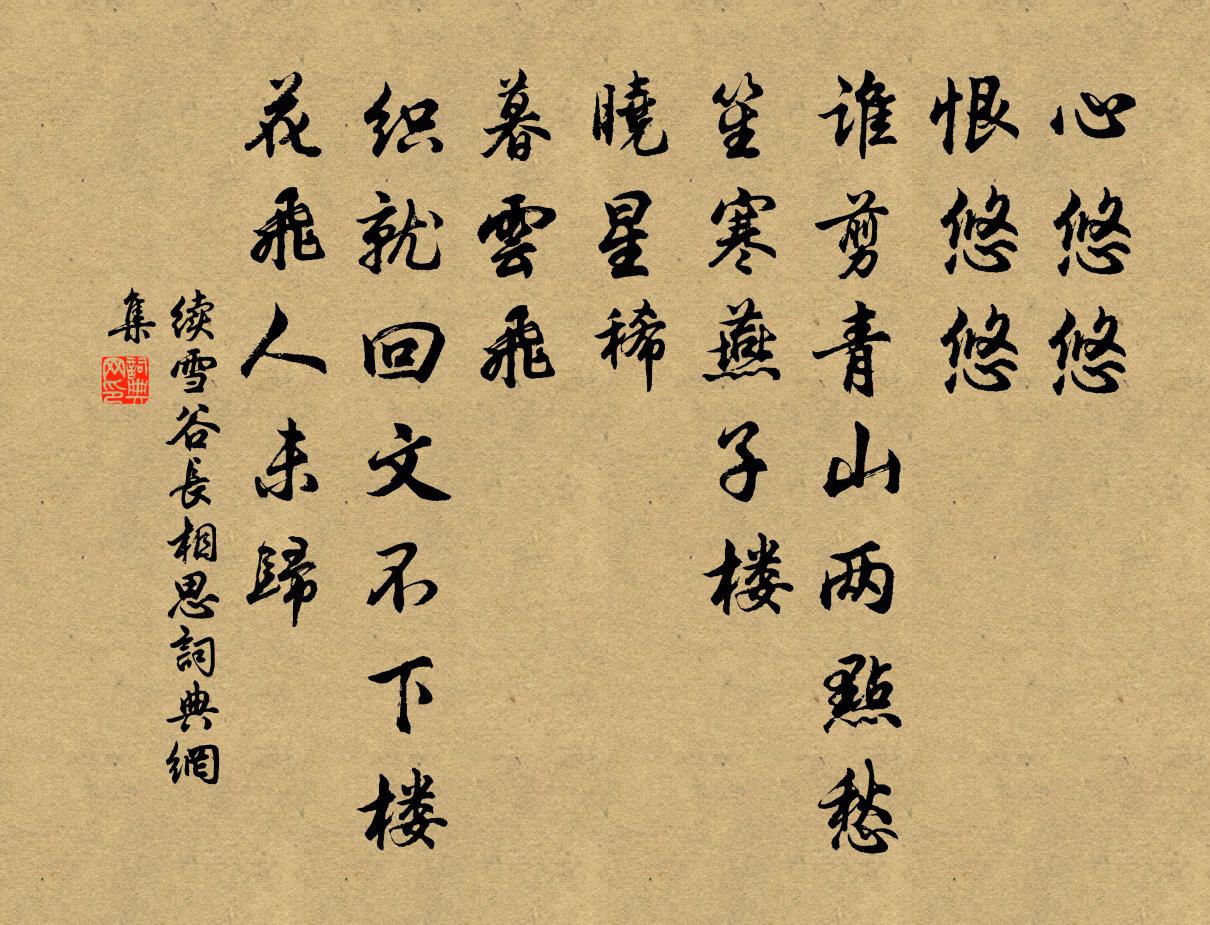 心悠悠
恨悠悠
谁剪青山两點愁
笙寒燕子楼
曉星稀
暮雲飛
织就回文不下楼
花飛人未歸
续雪谷長相思詞典網
集
詞典网印